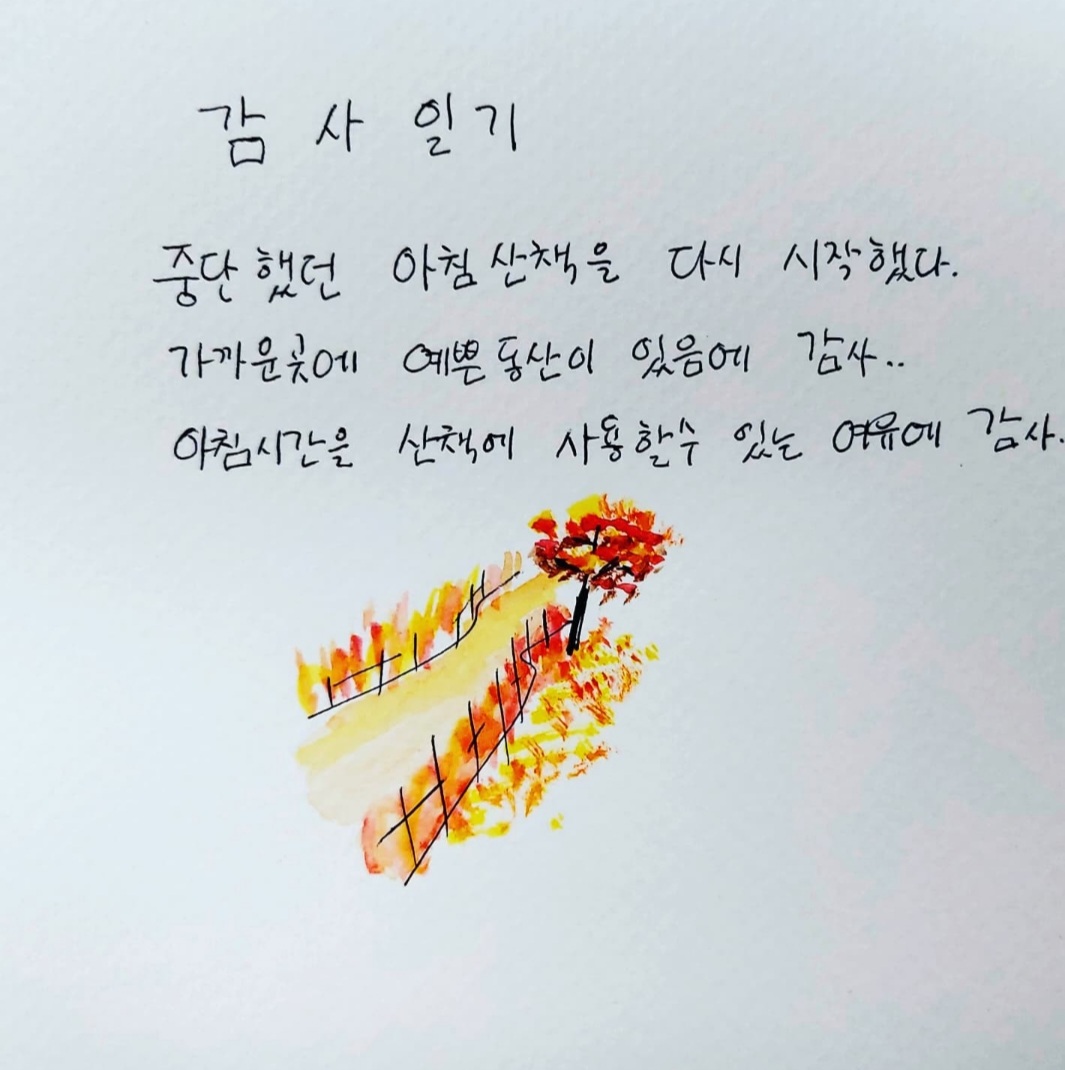 감사일기
중단했던 아침 산책을 다시 시작했다.
가까운곳에 예쁜 동산이 있음에 감사..
아침시간을 산책에 사용할수 있는 여유에 감사.